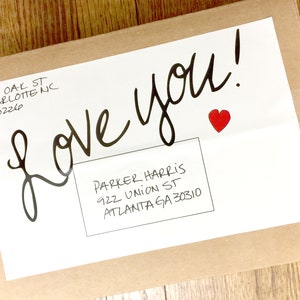 OAK ST
NC
Love you!
PARKER HARRIS
922 UNION ST
ATLANTA GA 30310